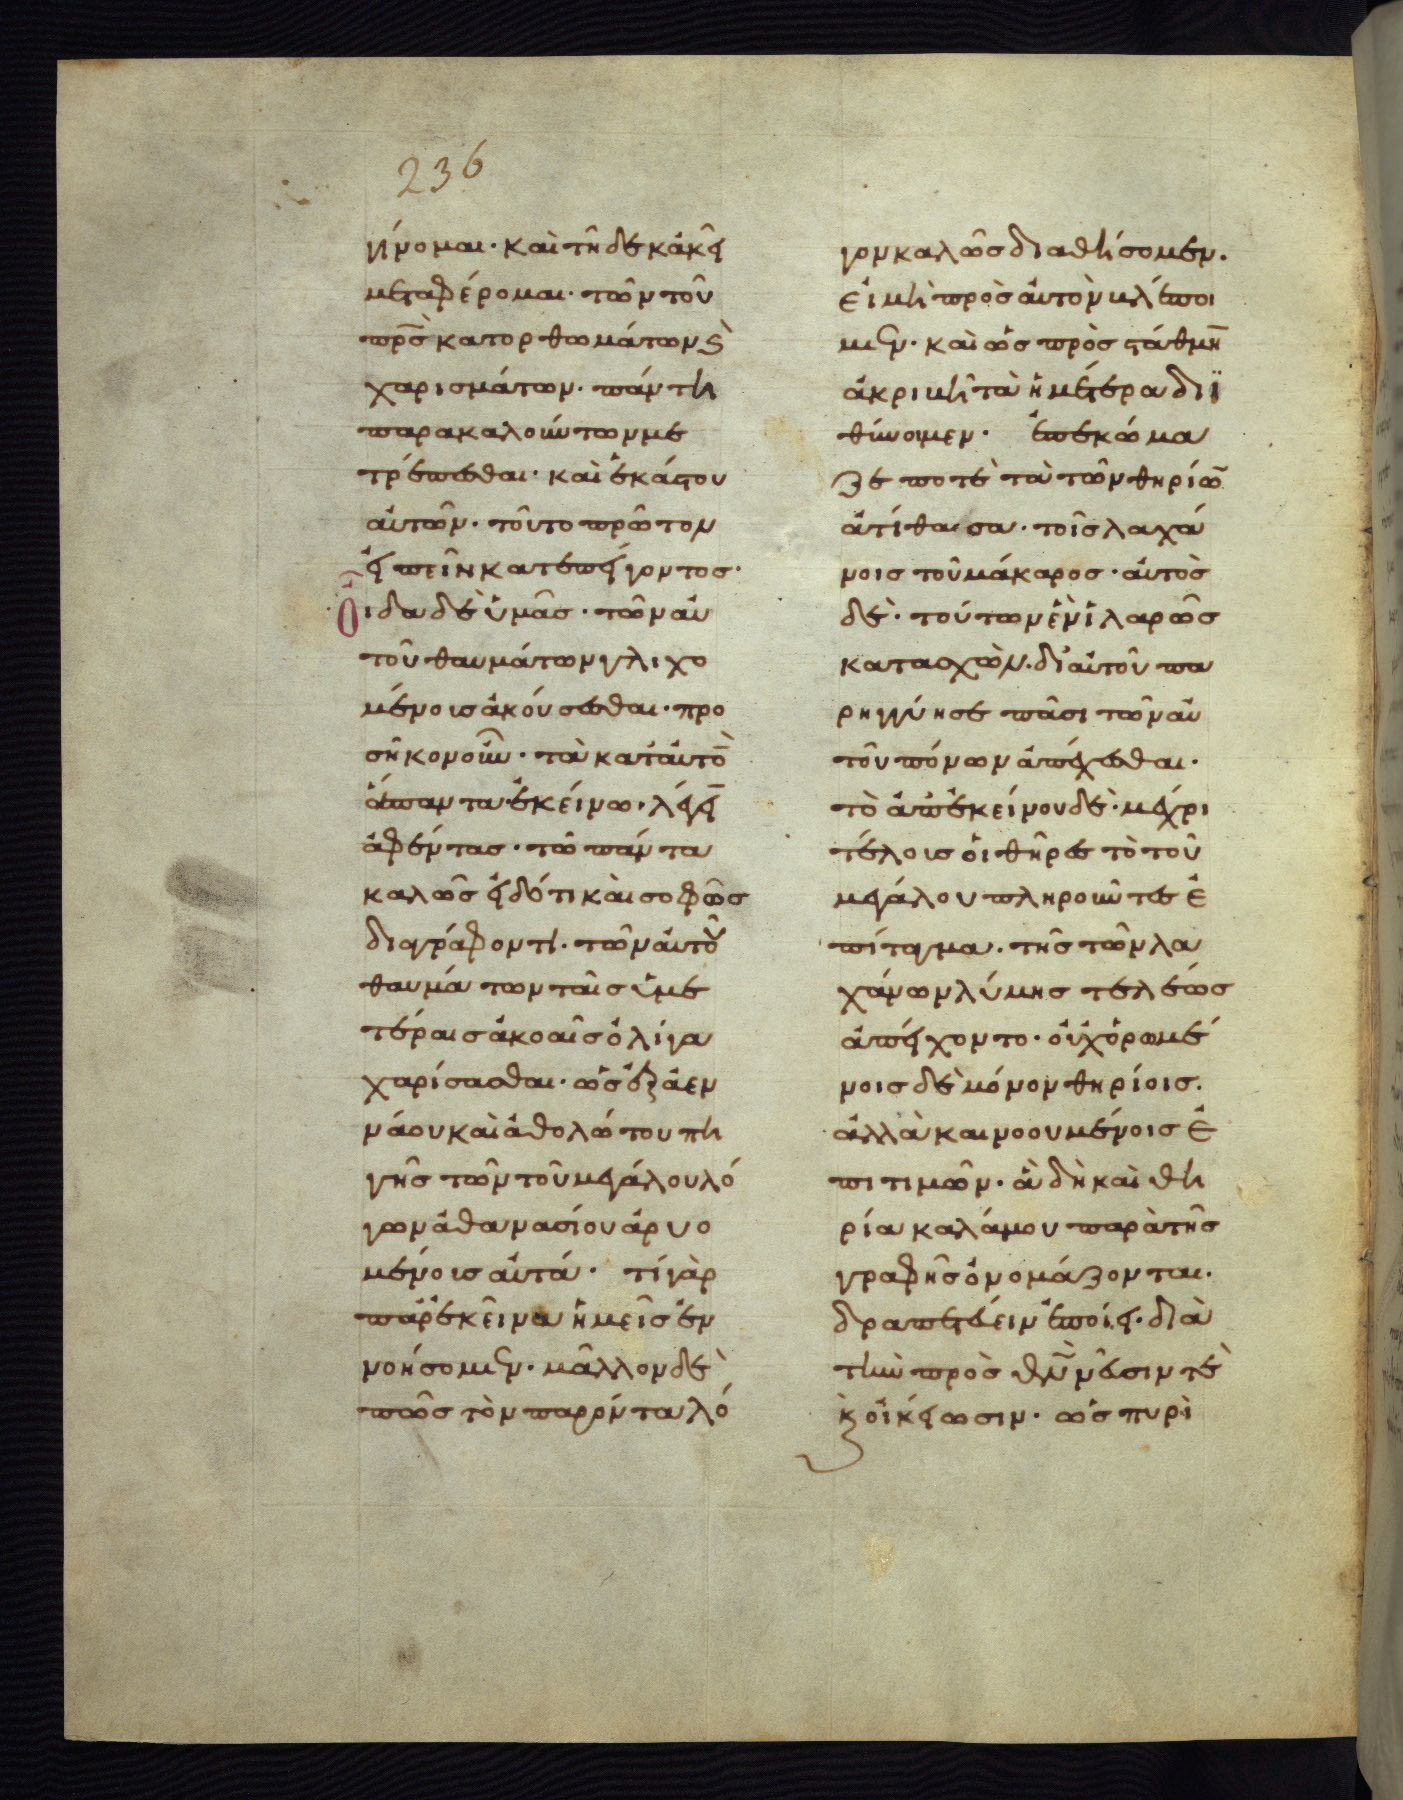 236
γίνομαι· καὶ τῆδε κἀκεῖ
μεταφέρομαι· τῶν τοῦ
πρς̅ κατορθωμάτων ϗ
χαρισμάτων· πάντη
παρακαλούντων με
τρέπεσθαι· καὶ ἑκάστου
αὐτῶν· τοῦτο πρῶτον
εἰπεῖν κατεπείγοντος·
Οἶδα δὲ ὑμᾶς· τῶν αὐ
τοῦ θαυμάτων γλιχο
μένοις ἀκούσεσθαι· προ
σῆκον οὖν· τὰ κατ' αὐτὸν
ἅπαντα ἐκείνω· λέγειν
ἀφέντας· τῶ πάντα
καλῶς εἰδότι καὶ σοφῶς
διαγράφοντι· τῶν αὐτοῦ
θαυμάτων ταῖς ὑμε
τέραις ἀκοαῖς ὀλίγα
χαρίσασθαι· ὡς ἐξ ἀεν
νάου καὶ ἀθολώτου πη
γῆς τῶν τοῦ μεγάλου λό
γων ἀθανασίου ἀρυο
μένοις αὐτά· τί γὰρ
παρ' ἐκεῖνα ἡμεῖς ἐν
νοήσομεν· μᾶλλον δὲ
πῶς τὸν παρόντα λό
γον καλῶς διαθήσομεν·
εἰ μὴ πρὸς αὐτὸν βλέποι
μεν· καὶ ὡς πρὸς στάθμην
ἀκριβῆ τὰ ἡμέτερα διϊ
θύνοιμεν· ἐπεκώμα
ζε ποτὲ τὰ τῶν θηρίων
ἀτίθασσα· τοῖς λαχά
νοις τοῦ μάκαρος· αὐτὸς
δὲ· τούτων ἐνὶ ἱλαρῶς
κατασχὼν· δι' αὐτοῦ πα
ρηγγύησε πᾶσι τῶν αὐ
τοῦ πόνων ἀπέχεσθαι·
τὸ ἀπ' ἐκείνου δὲ· μέχρι
τέλους οἱ θῆρες τὸ τοῦ
μεγάλου πληροῦντες ἐ
πίταγμα· τῆς τῶν λα
χάνων λύμης τελέως
ἀπείχοντο· οὐχ ὁρωμέ
νοις δὲ μόνον θηρίοις·
ἀλλὰ καὶ νοουμένοις ἐ
πιτιμῶν· ἃ δὴ καὶ θη
ρία καλάμου παρὰ τῆς
γραφῆς ὀνομάζονται·
δραπετεύειν ἐποίει· διὰ
τὴν πρὸς θν̅ νεῦσιν τὲ
ϗ οἰκείωσιν· ὡς πυρὶ